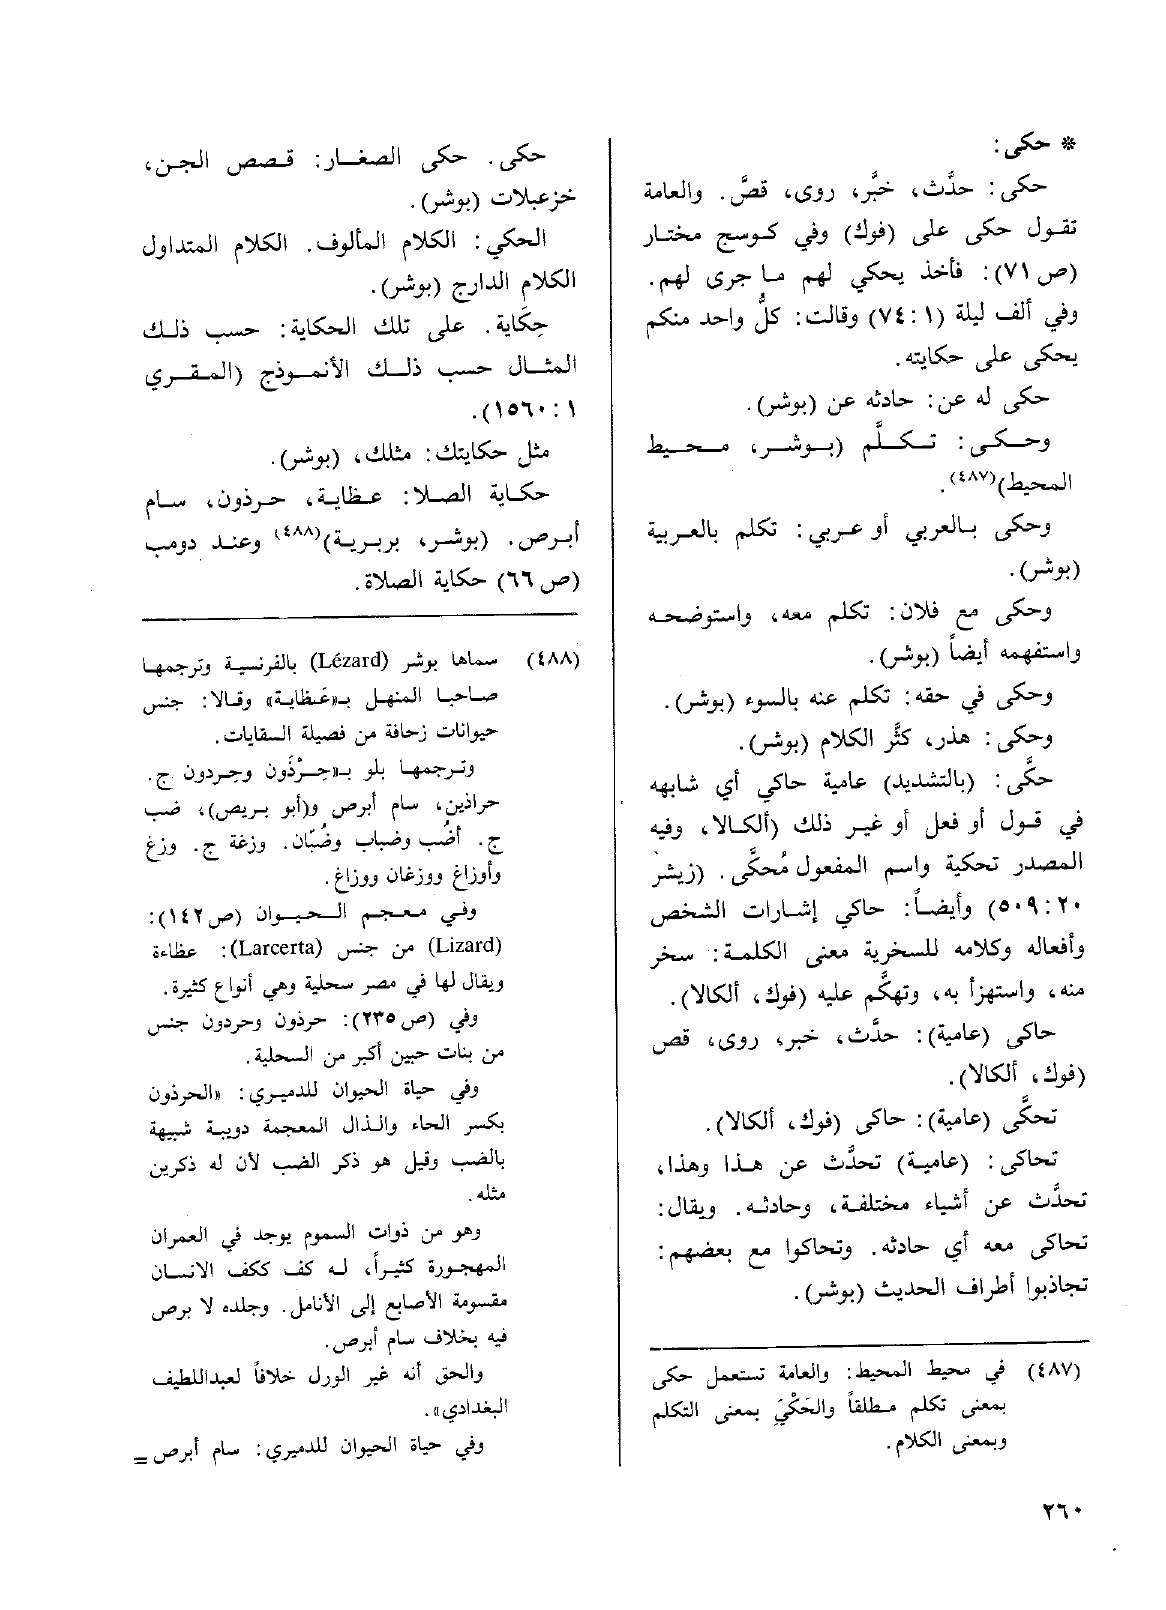 * حكى:
حكى: حدَّث، خبَّر، روى، قصَّ. والعامة
تقول حكى على (فوك) وفي كوسج مختار
(ص ٧١): فأخذ يحكي لهم ما جرى لهم.
وفي ألف ليلة (١: ٧٤) وقالت: كلُّ واحد منكم
يحكى على حكايته.
حكى له عن: حادثه عن (بوشر).
وحكى: تكلَّم (بوشر، محيط
المحيط)(٤٨٧).
وحكى بالعربي أو عربي: تكلم بالعربية
(بوشر).
وحكى مع فلان: تكلم معه، واستوضحه
واستفهمه أيضاً (بوشر).
وحكى في حقه: تكلم عنه بالسوء (بوشر).
وحكى: هذر، كثَّر الكلام (بوشر).
حكَّى: (بالتشديد) عامية حاكي أي شابهه
في قول أو فعل أو غير ذلك (ألكالا، وفيه
المصدر تحكية واسم المفعول مُحكَّى. (زيشر
٢٠: ٥٠٩) وأيضاً: حاكي إشارات الشخص
وأفعاله وكلامه للسخرية معنى الكلمة: سخر
منه، واستهزأ به، وتهكَّم عليه (فوك، ألكالا).
حاكي (عامية): حدَّث، خبر، روى، قص
(فوك، ألكالا).
تحكَّى (عامية): حاكى (فوك، ألكالا).
تحاكى: (عامية) تحدَّث عن هذا وهذا،
تحدَّث عن أشياء مختلفة، وحادثه. ويقال:
تحاكى معه أي حادثه. وتحاكوا مع بعضهم:
تجاذبوا أطراف الحديث (بوشر).
(٤٨٧) في محيط المحيط: والعامة تستعمل حكى
بمعنى تكلم مطلقاً والحَكْيَ بمعنى التكلم
وبمعنى الكلام.
حكى. حكى الصغار: قصص الجن،
خزعبلات (بوشر).
الحكي: الكلام المألوف. الكلام المتداول
الكلام الدارج (بوشر).
حِكَاية. على تلك الحكاية: حسب ذلك
المثال حسب ذلك الأنموذج (المقري
١: ١٥٦٠).
مثل حكايتك: مثلك، (بوشر).
حكاية الصلا: عظاية، حرذون، سام
أبرص. (بوشر، بربرية)(٤٨٨) وعند دومب
(ص ٦٦) حكاية الصلاة.
(٤٨٨) سماها بوشر (Lézard) بالفرنسية وترجمها
صاحبا المنهل بـ«عَظاية» وقالا: جنس
حيوانات زحافة من فصيلة السقايات.
وترجمها بلو بـ«حِرْذَون وجردون ج.
حراذين، سام أبرص و(أبو بريص)، ضب
ج. أضُب وضباب وضُبّان. وزغة ج. وزغ
وأوزاغ ووزغان ووزاغ.
وفي معجم الحيوان (ص ١٤٢):
(Lizard) من جنس (Larcerta): عظاءة
ويقال لها في مصر سحلية وهي أنواع كثيرة.
وفي (ص ٢٣٥): حرذون وحردون جنس
من بنات حبين أكبر من السحلية.
وفي حياة الحيوان للدميري: «الحرذون
بكسر الحاء والذال المعجمة دويبة شبيهة
بالضب وقيل هو ذكر الضب لأن له ذكرين
مثله.
وهو من ذوات السموم يوجد في العمران
المهجورة كثيراً، له كف ككف الانسان
مقسومة الأصابع إلى الأنامل. وجلده لا برص
فيه بخلاف سام أبرص.
والحق أنه غير الورل خلافاً لعبداللطيف
البغدادي».
وفي حياة الحيوان للدميري: سام أبرص =
٢٦٠